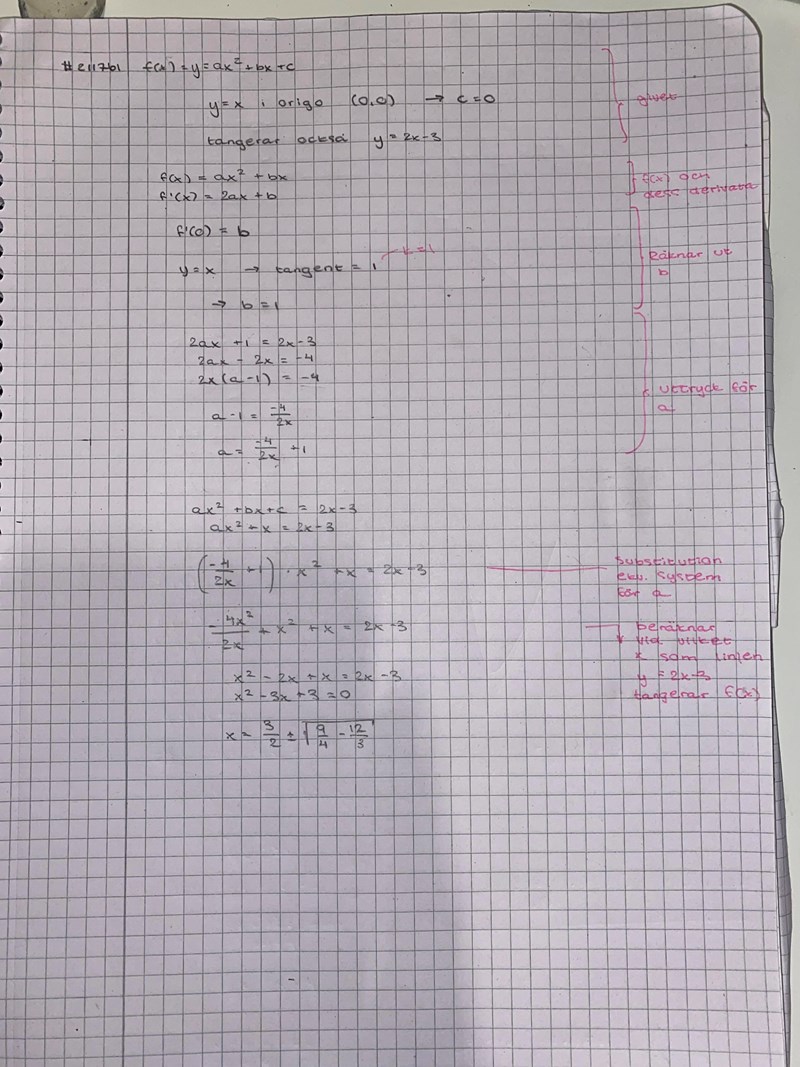 #2117b1 f(x) = y = ax² + bx + c
y = x i origo (0,0) → c = 0
givet
tangerar också y = 2x-3
f(x) = ax² + bx
f(x) och
f'(x) = 2ax + b
dess derivata
f'(0) = b
k=1
y = x → tangent = 1
Räknar ut
b
→ b = 1
2ax + 1 = 2x-3
2ax - 2x = -4
2x(a-1) = -4
uttryck för
a
a-1 = -4/2x
a = -4/2x + 1
ax² + bx + c = 2x-3
ax² + x = 2x-3
(-4/2x + 1) · x² + x = 2x-3
Substitution
ekv. system
för a
-4x²/2x + x² + x = 2x-3
beräknar
vid vilket
x som linjen
y = 2x-3
tangerar f(x)
x² - 2x + x = 2x-3
x² - 3x + 3 = 0
x = 3/2 ± √(9/4 - 12/3)